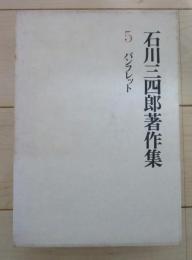 石川三四郎著作集
5 パンフレット